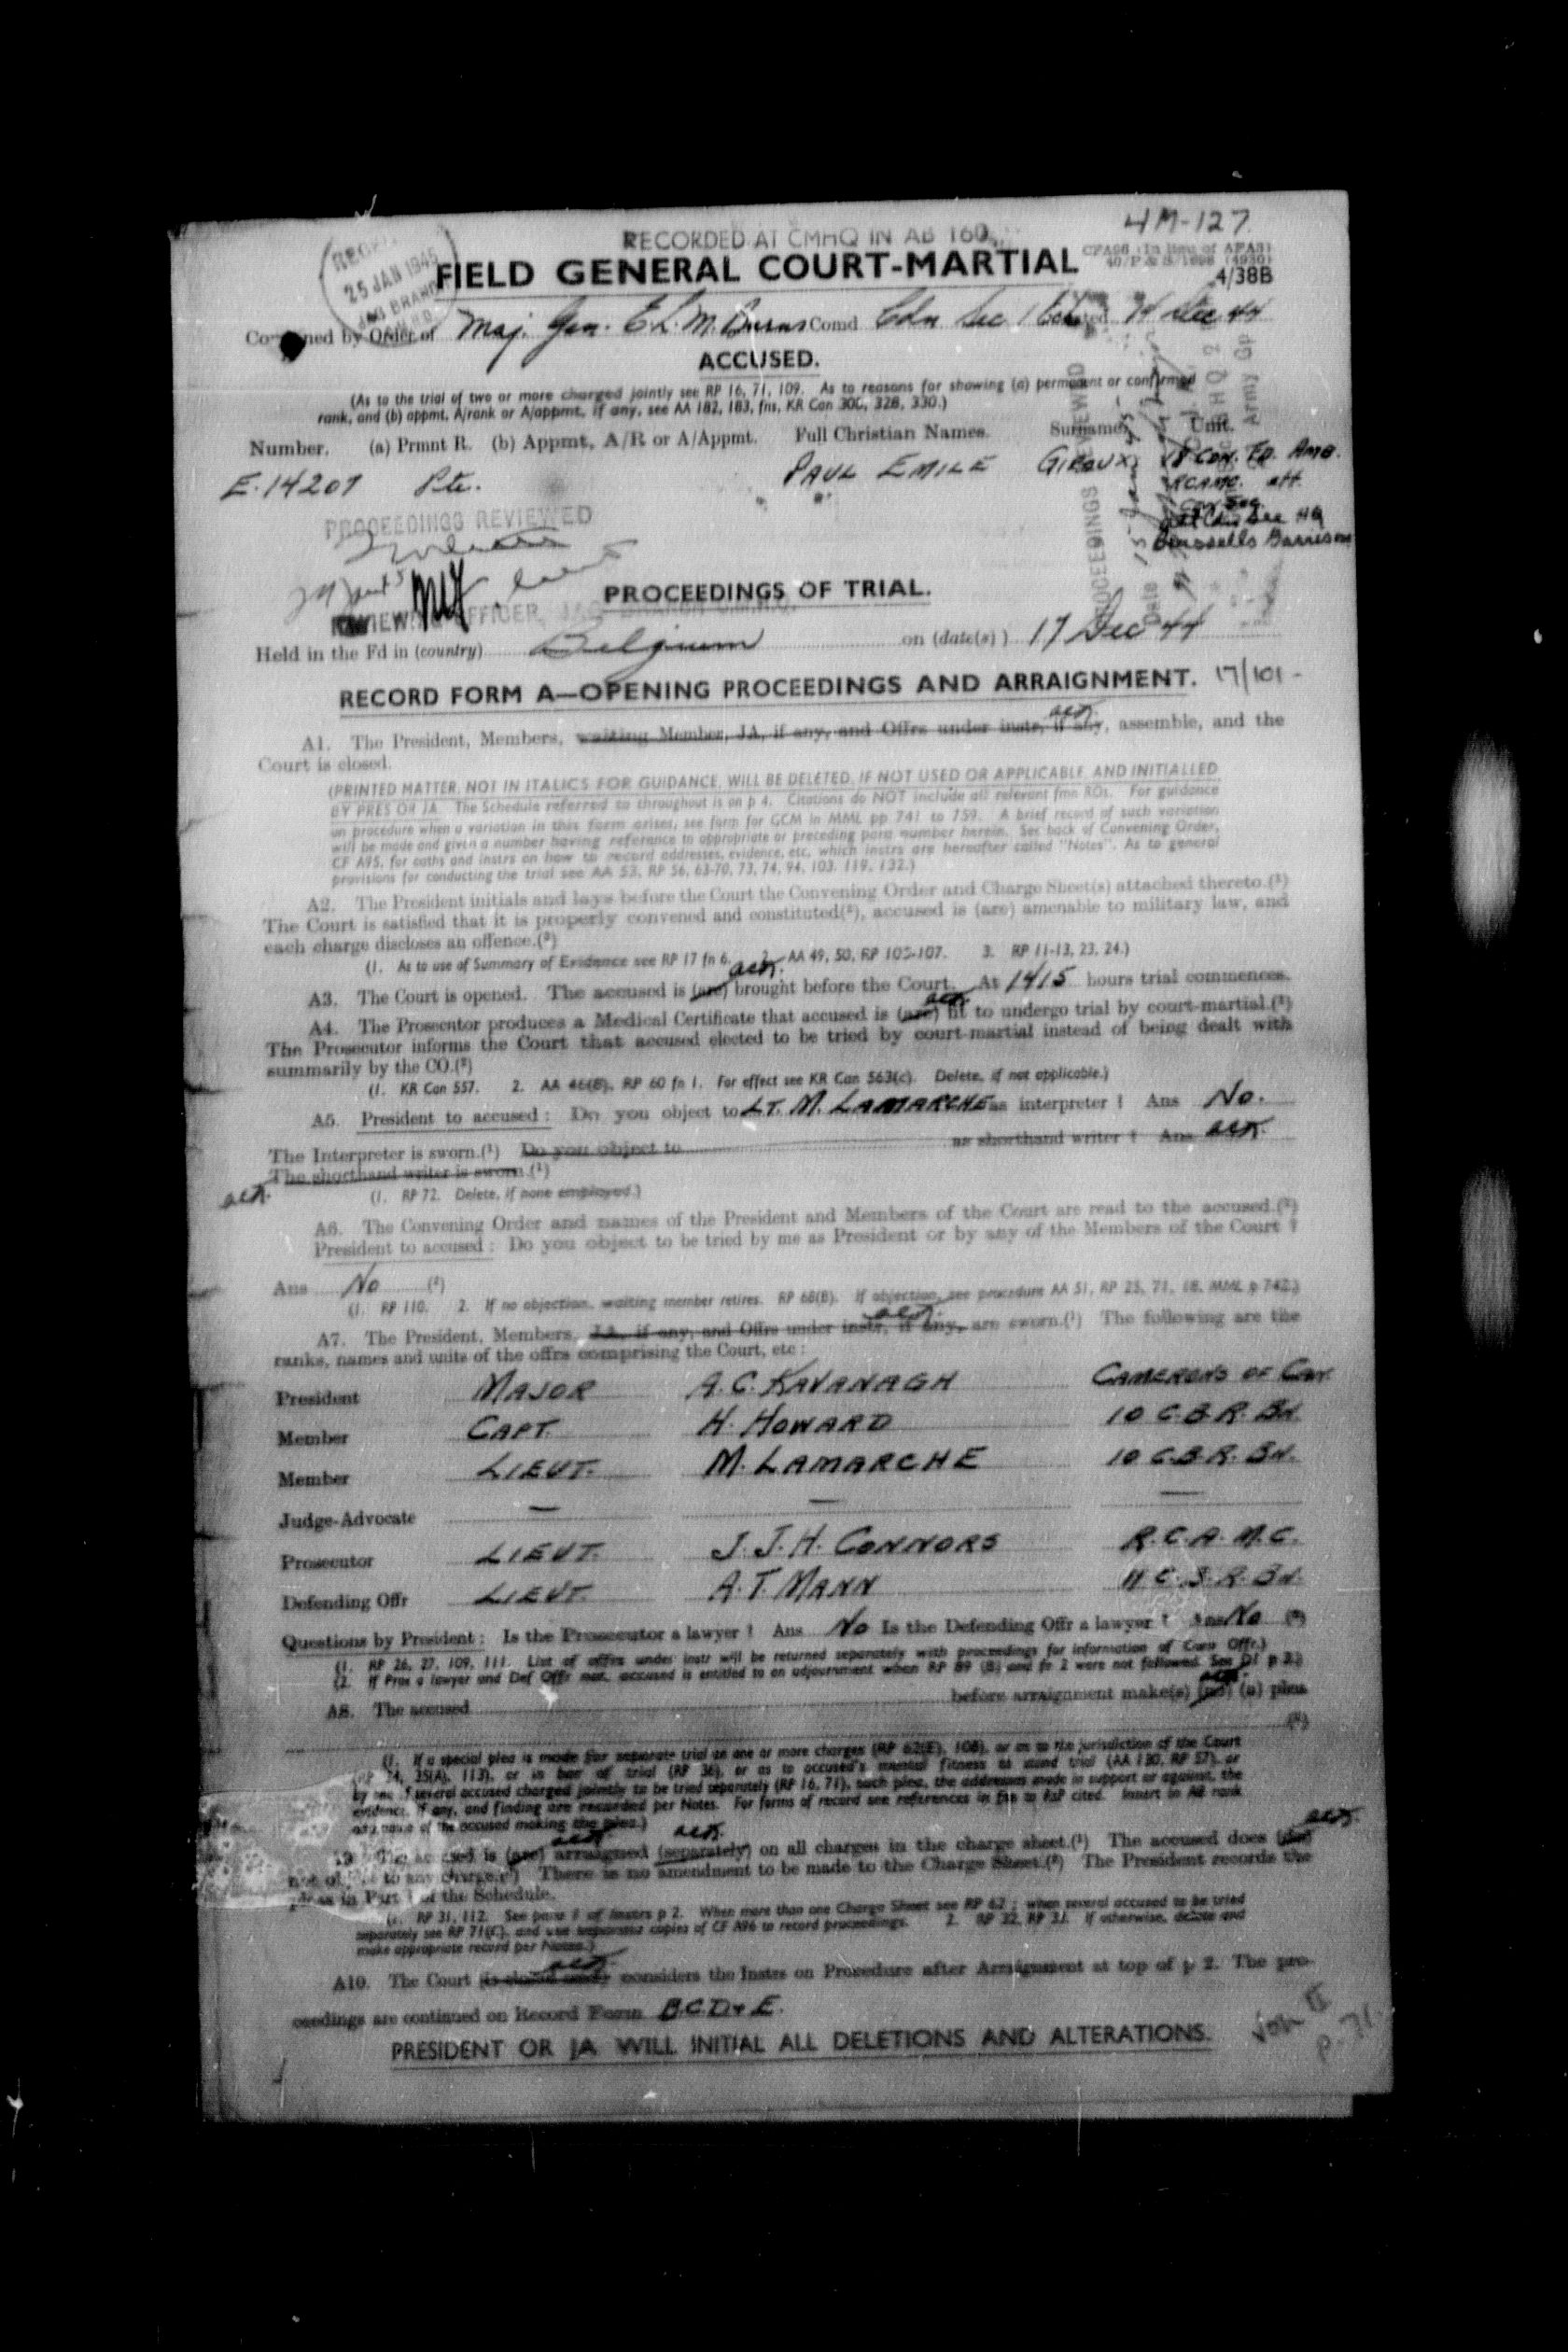 4M-127
RECORDED AT CMHQ IN AB 160
CFA96 (In lieu of AFA3)
4/38B
25 JAN 1945
JAG BRANCH
FIELD GENERAL COURT-MARTIAL
Convened by Order of Maj. Gen. E.L.M. Burns Comd Cdn Sec 1 Dec 44
ACCUSED.
(As to the trial of two or more charged jointly see RP 16, 71, 109. As to reasons for showing (a) permanent or confirmed
rank, and (b) appmt, A/rank or A/appmt, if any, see AA 182, 183, fns, KR Can 300, 328, 330.)
Number. (a) Prmnt R. (b) Appmt, A/R or A/Appmt. Full Christian Names. Surname. Unit.
E.14207 Pte. PAUL EMILE GIROUX Fd. Amb.
RCAMC. att.
Brussells Garrison
PROCEEDINGS REVIEWED
PROCEEDINGS REVIEWED
REVIEWING OFFICER, JAG BRANCH C.M.H.Q.
PROCEEDINGS OF TRIAL.
Held in the Fd in (country) Belgium on (date(s)) 17 Dec 44
RECORD FORM A—OPENING PROCEEDINGS AND ARRAIGNMENT. 17/101-
A1. The President, Members, waiting Member, JA, if any, and Offrs under instr, if any, assemble, and the
Court is closed.
(PRINTED MATTER, NOT IN ITALICS FOR GUIDANCE, WILL BE DELETED, IF NOT USED OR APPLICABLE, AND INITIALLED
BY PRES OR JA. The Schedule referred to throughout is on p 4. Citations do NOT include all relevant fmn ROs. For guidance
on procedure when a variation in this form arises, see form for GCM in MML pp 741 to 759. A brief record of such variation
will be made and given a number having reference to appropriate or preceding para number herein. See back of Convening Order,
CF A95, for oaths and instrs on how to record addresses, evidence, etc, which instrs are hereafter called "Notes". As to general
provisions for conducting the trial see AA 53, RP 56, 63-70, 73, 74, 94, 103, 119, 132.)
A2. The President initials and lays before the Court the Convening Order and Charge Sheet(s) attached thereto.(¹)
The Court is satisfied that it is properly convened and constituted(²), accused is (are) amenable to military law, and
each charge discloses an offence.(³)
(1. As to use of Summary of Evidence see RP 17 fn 6. 2. AA 49, 50, RP 105-107. 3. RP 11-13, 23, 24.)
A3. The Court is opened. The accused is (are) brought before the Court. At 1415 hours trial commences.
A4. The Prosecutor produces a Medical Certificate that accused is (are) fit to undergo trial by court-martial.(¹)
The Prosecutor informs the Court that accused elected to be tried by court-martial instead of being dealt with
summarily by the CO.(²)
(1. KR Can 557. 2. AA 46(8), RP 60 fn 1. For effect see KR Can 563(c). Delete, if not applicable.)
A5. President to accused: Do you object to LT. M. LAMARCHE as interpreter? Ans No.
The Interpreter is sworn.(¹) Do you object to as shorthand writer? Ans
The shorthand writer is sworn.(¹)
(1. RP 72. Delete, if none employed.)
A6. The Convening Order and names of the President and Members of the Court are read to the accused.(¹)
President to accused: Do you object to be tried by me as President or by any of the Members of the Court?
Ans No (²)
(1. RP 110. 2. If no objection, waiting member retires. RP 68(B). If objection, see procedure AA 51, RP 25, 71, 18, MML p 742.)
A7. The President, Members, JA, if any, and Offrs under instr, if any, are sworn.(¹) The following are the
ranks, names and units of the offrs comprising the Court, etc:
President MAJOR A.C. KAVANAGH CAMERONS OF CAN.
Member CAPT. H. HOWARD 10 C.B.R. BN
Member LIEUT. M. LAMARCHE 10 C.B.R. BN.
Judge-Advocate — — —
Prosecutor LIEUT. J.J.H. CONNORS R.C.A.M.C.
Defending Offr LIEUT. A.T. MANN 11 C.B.R. BN.
Questions by President: Is the Prosecutor a lawyer? Ans No Is the Defending Offr a lawyer? Ans No (²)
(1. RP 26, 27, 109, 111. List of offrs under instr will be returned separately with proceedings for information of Conv Offr.)
(2. If Pros a lawyer and Def Offr not, accused is entitled to an adjournment when RP 89 (B) and fn 2 were not followed. See D1 p 2.)
A8. The accused before arraignment make(s) (no) (a) plea
(¹)
(1. If a special plea is made for separate trial on one or more charges (RP 62(E), 108), or as to the jurisdiction of the Court
(RP 34, 35(A), 113), or in bar of trial (RP 36), or as to accused's mental fitness to stand trial (AA 130, RP 57), or
by one of several accused charged jointly to be tried separately (RP 16, 71), such plea, the addresses made in support or against, the
evidence, if any, and finding are recorded per Notes. For forms of record see references in fns to RsP cited. Insert in A8 rank
and name of the accused making the plea.)
A9. The accused is (are) arraigned (separately) on all charges in the charge sheet.(¹) The accused does (do)
not object to any charge.(²) There is no amendment to be made to the Charge Sheet.(²) The President records the
pleas in Part 1 of the Schedule.
(1. RP 31, 112. See para of Instrs p 2. When more than one Charge Sheet see RP 62; when several accused to be tried
separately see RP 71(C), and use separate copies of CF A96 to record proceedings. 2. RP 32, RP 33. If otherwise, delete and
make appropriate record per Notes.)
A10. The Court (is closed and) considers the Instrs on Procedure after Arraignment at top of p 2. The pro-
ceedings are continued on Record Form B.C.D & E.
PRESIDENT OR JA WILL INITIAL ALL DELETIONS AND ALTERATIONS.
p. 71.